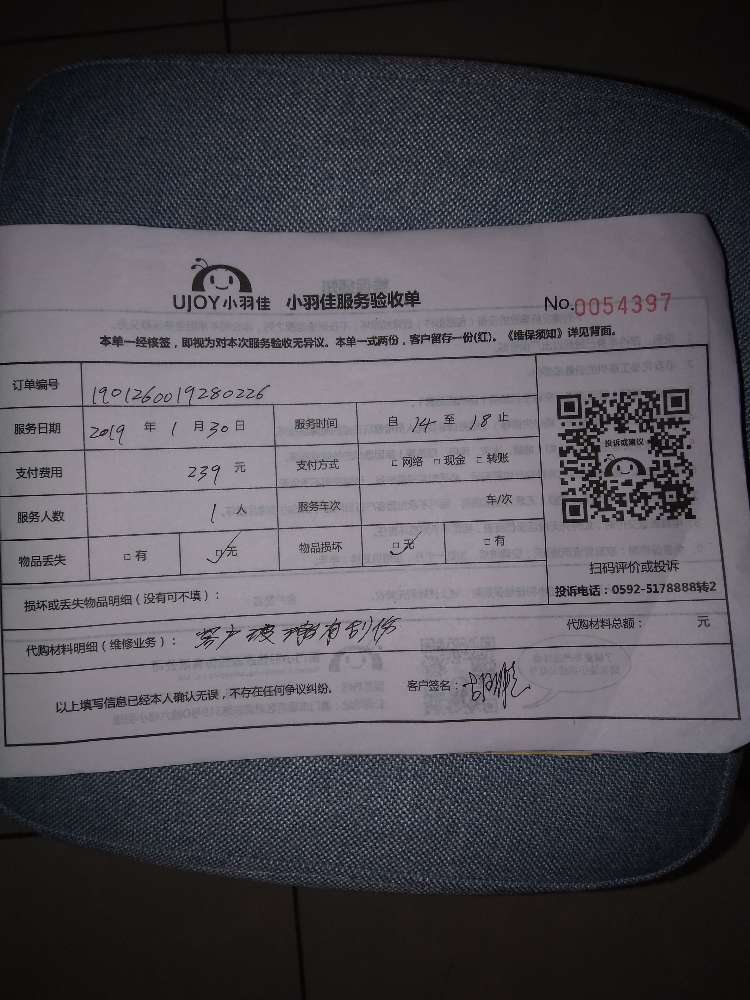 UJOY小羽佳 小羽佳服务验收单 No.0054397
本单一经核签，即视为对本次服务验收无异议。本单一式两份，客户留存一份(红)。《维保须知》详见背面。
订单编号 1901260019280226
服务日期 2019 年 1 月 30 日 服务时间 自 14 至 18 止
支付费用 239 元 支付方式 □ 网络 □ 现金 □ 转账
服务人数 1 人 服务车次 车/次
物品丢失 □ 有 ☑ 无 物品损坏 ☑ 无 □ 有
投诉或建议
扫码评价或投诉
投诉电话：0592-5178888转2
损坏或丢失物品明细（没有可不填）：
代购材料明细（维修业务）： 客户玻璃有刮伤 代购材料总额： 元
以上填写信息已经本人确认无误，不存在任何争议纠纷。 客户签名：